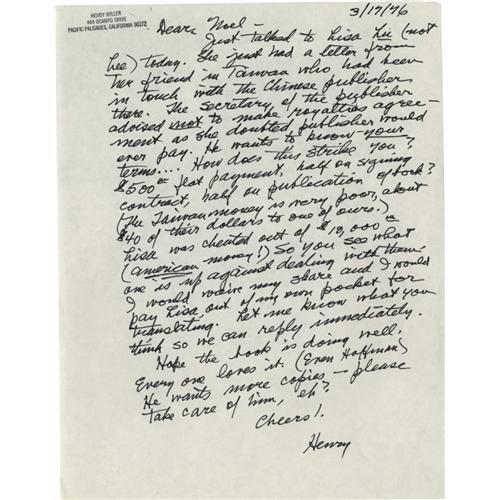 HENRY MILLER
444 OCAMPO DRIVE
PACIFIC PALISADES, CALIFORNIA 90272
3/17/76
Dear Noel —
Just talked to Lisa Liu (not
Lee) today. She just had a letter from
her friend in Taiwan who had been
in touch with the Chinese publisher
there. The secretary of the publisher
advised not to make royalties agree-
ment as she doubted publisher would
ever pay. He wants to know your
terms.... How does this strike you?
$500 flat payment, half on signing
contract, half on publication of book?
(The Taiwan money is very poor, about
$40 of their dollars to one of ours.)
Lisa was cheated out of $10,000
(american money!) So you see what
one is up against dealing with them.
I would waive my share and I would
pay Lisa out of my own pocket for
translating. Let me know what you
think so we can reply immediately.
Hope the book is doing well.
Every one loves it. (Even Hoffman)
He wants more copies — please
take care of him, eh?
Cheers!
Henry